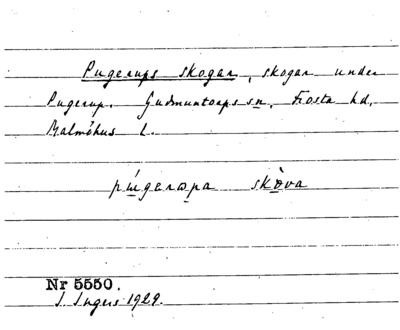 Pugerups skogar, skogar under
Pugerup. Gudmuntorps sn. Frosta hd.
Malmöhus l.
skòva
Nr 5550.
I. Ingers 1929.